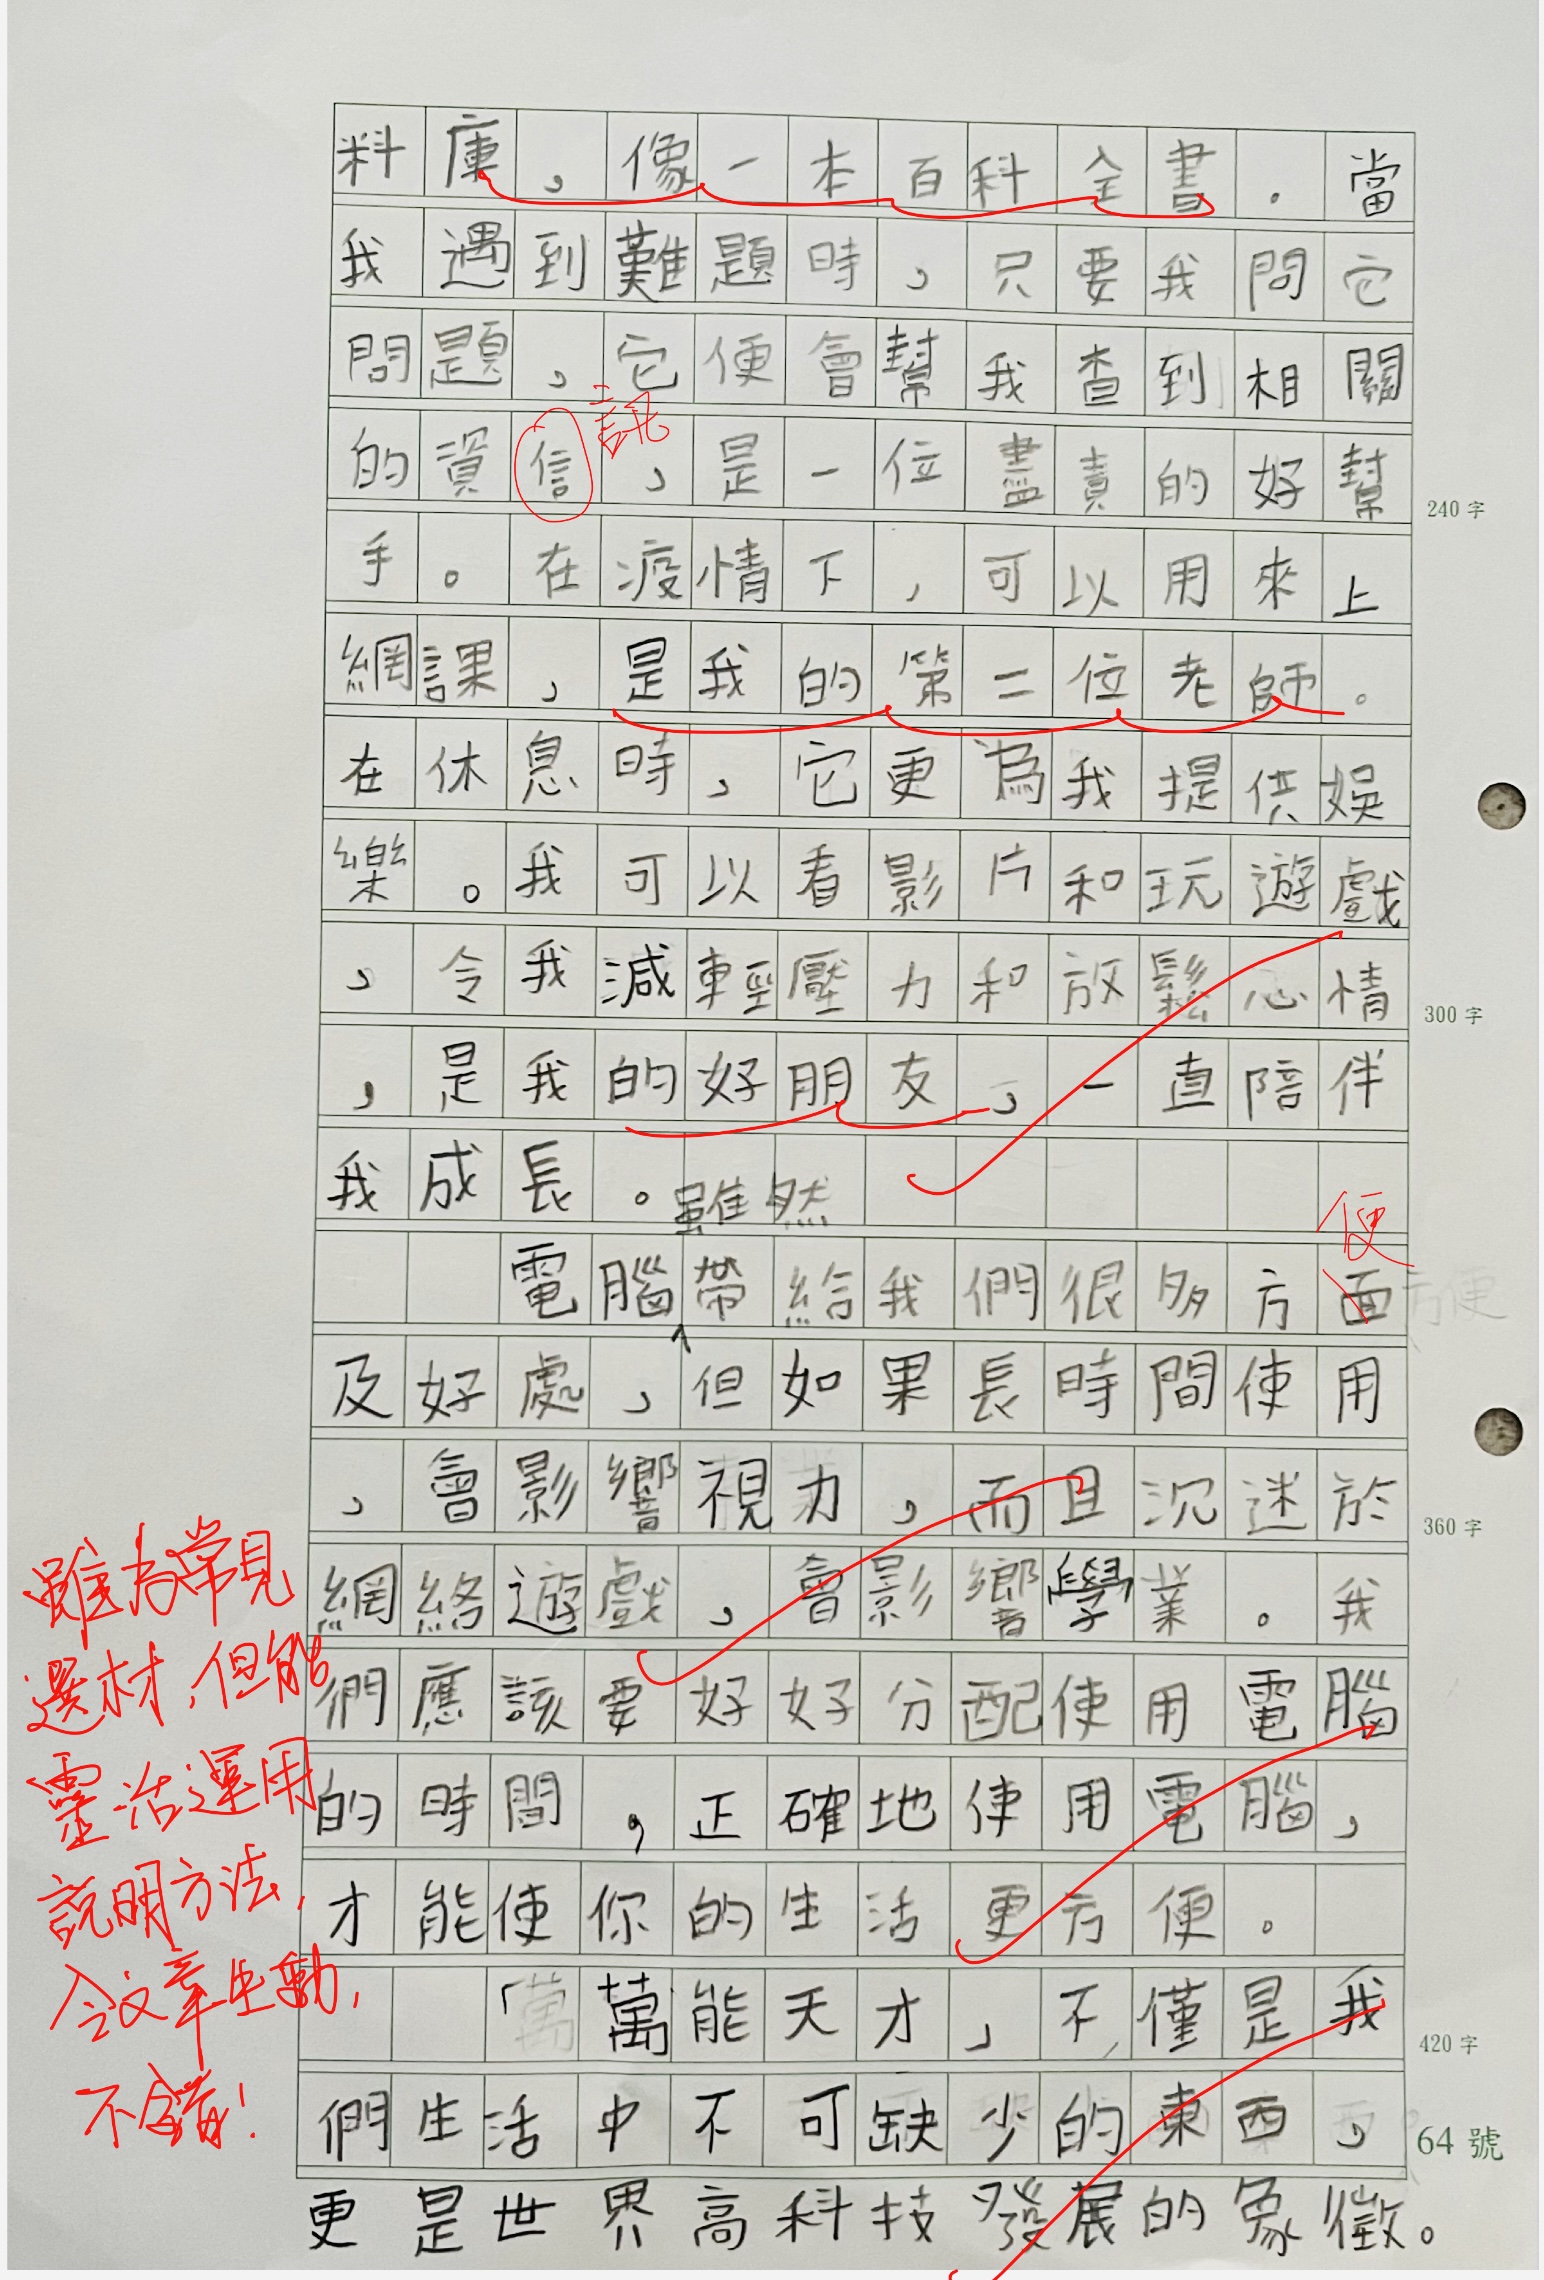 料庫，像一本百科全書。當
我遇到難題時，只要我問它
問題，它便會幫我查到相關
訊
的資信，是一位盡責的好幫
240字
手。在疫情下，可以用來上
網課，是我的第二位老師。
在休息時，它更為我提供娛
樂。我可以看影片和玩遊戲
，令我減輕壓力和放鬆心情
300字
，是我的好朋友，一直陪伴
我成長。
雖然
便
電腦帶給我們很多方面
方便
及好處，但如果長時間使用
，會影響視力，而且沉迷於
360字
網絡遊戲，會影響學業。我
們應該要好好分配使用電腦
的時間，正確地使用電腦，
才能使你的生活更方便。
「萬能天才，不僅是我
420字
們生活中不可缺少的東西，
64號
更是世界高科技發展的象徵。
雖為常見
選材，但能
靈活運用
說明方法，
令文章生動，
不錯！